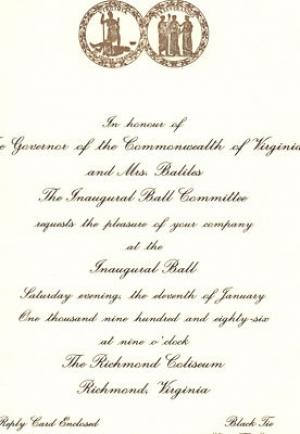 In honour of
e Governor of the Commonwealth of Virginia
and Mrs. Baliles
The Inaugural Ball Committee
requests the pleasure of your company
at the
Inaugural Ball
Saturday evening, the eleventh of January
One thousand nine hundred and eighty-six
at nine o'clock
The Richmond Coliseum
Richmond, Virginia
Reply Card Enclosed
Black Tie